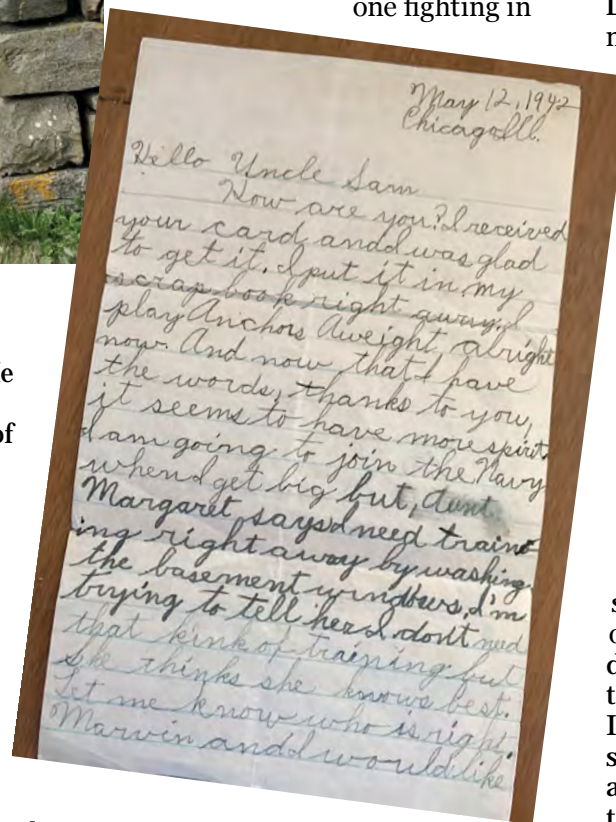 one fighting in
May 12, 1942
Chicago Ill.
Hello Uncle Sam
How are you? I received
your card and I was glad
to get it. I put it in my
scrap book right away. I
play Anchors Aweight alright
now. And now that I have
the words, thanks to you,
it seems to have more spirit.
I am going to join the Navy
when I get big but, Aunt
Margaret says I need train-
ing right away by washing
the basement windows, I'm
trying to tell her I don't need
that kink of training but
she thinks she knows best.
Let me know who is right.
Marvin and I would like
of